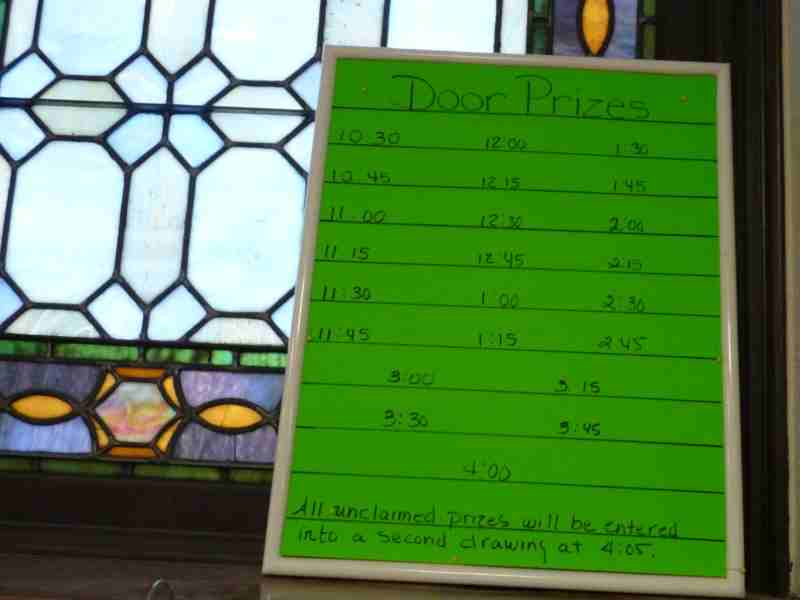 Door Prizes
10:30 12:00 1:30
10:45 12:15 1:45
11:00 12:30 2:00
11:15 12:45 2:15
11:30 1:00 2:30
11:45 1:15 2:45
3:00 3:15
3:30 3:45
4:00
All unclaimed prizes will be entered
into a second drawing at 4:05.